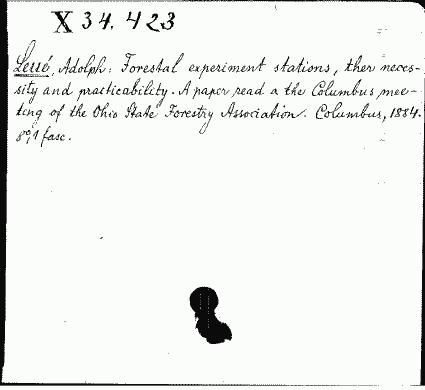 X 34.423
Leué, Adolph: Forestal experiment stations, ther neces-
sity and practicability. A paper read a the Columbus mee-
ting of the Ohio State Forestry Association. Columbus, 1884.
8º, 1 fasc.